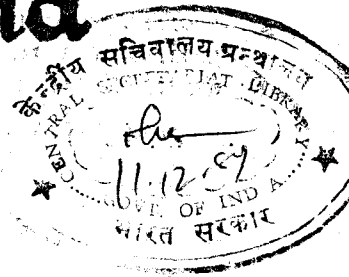 केन्द्रीय सचिवालय ग्रन्थालय
CENTRAL SECRETARIAT LIBRARY
11.12.59
GOVT. OF INDIA
भारत सरकार